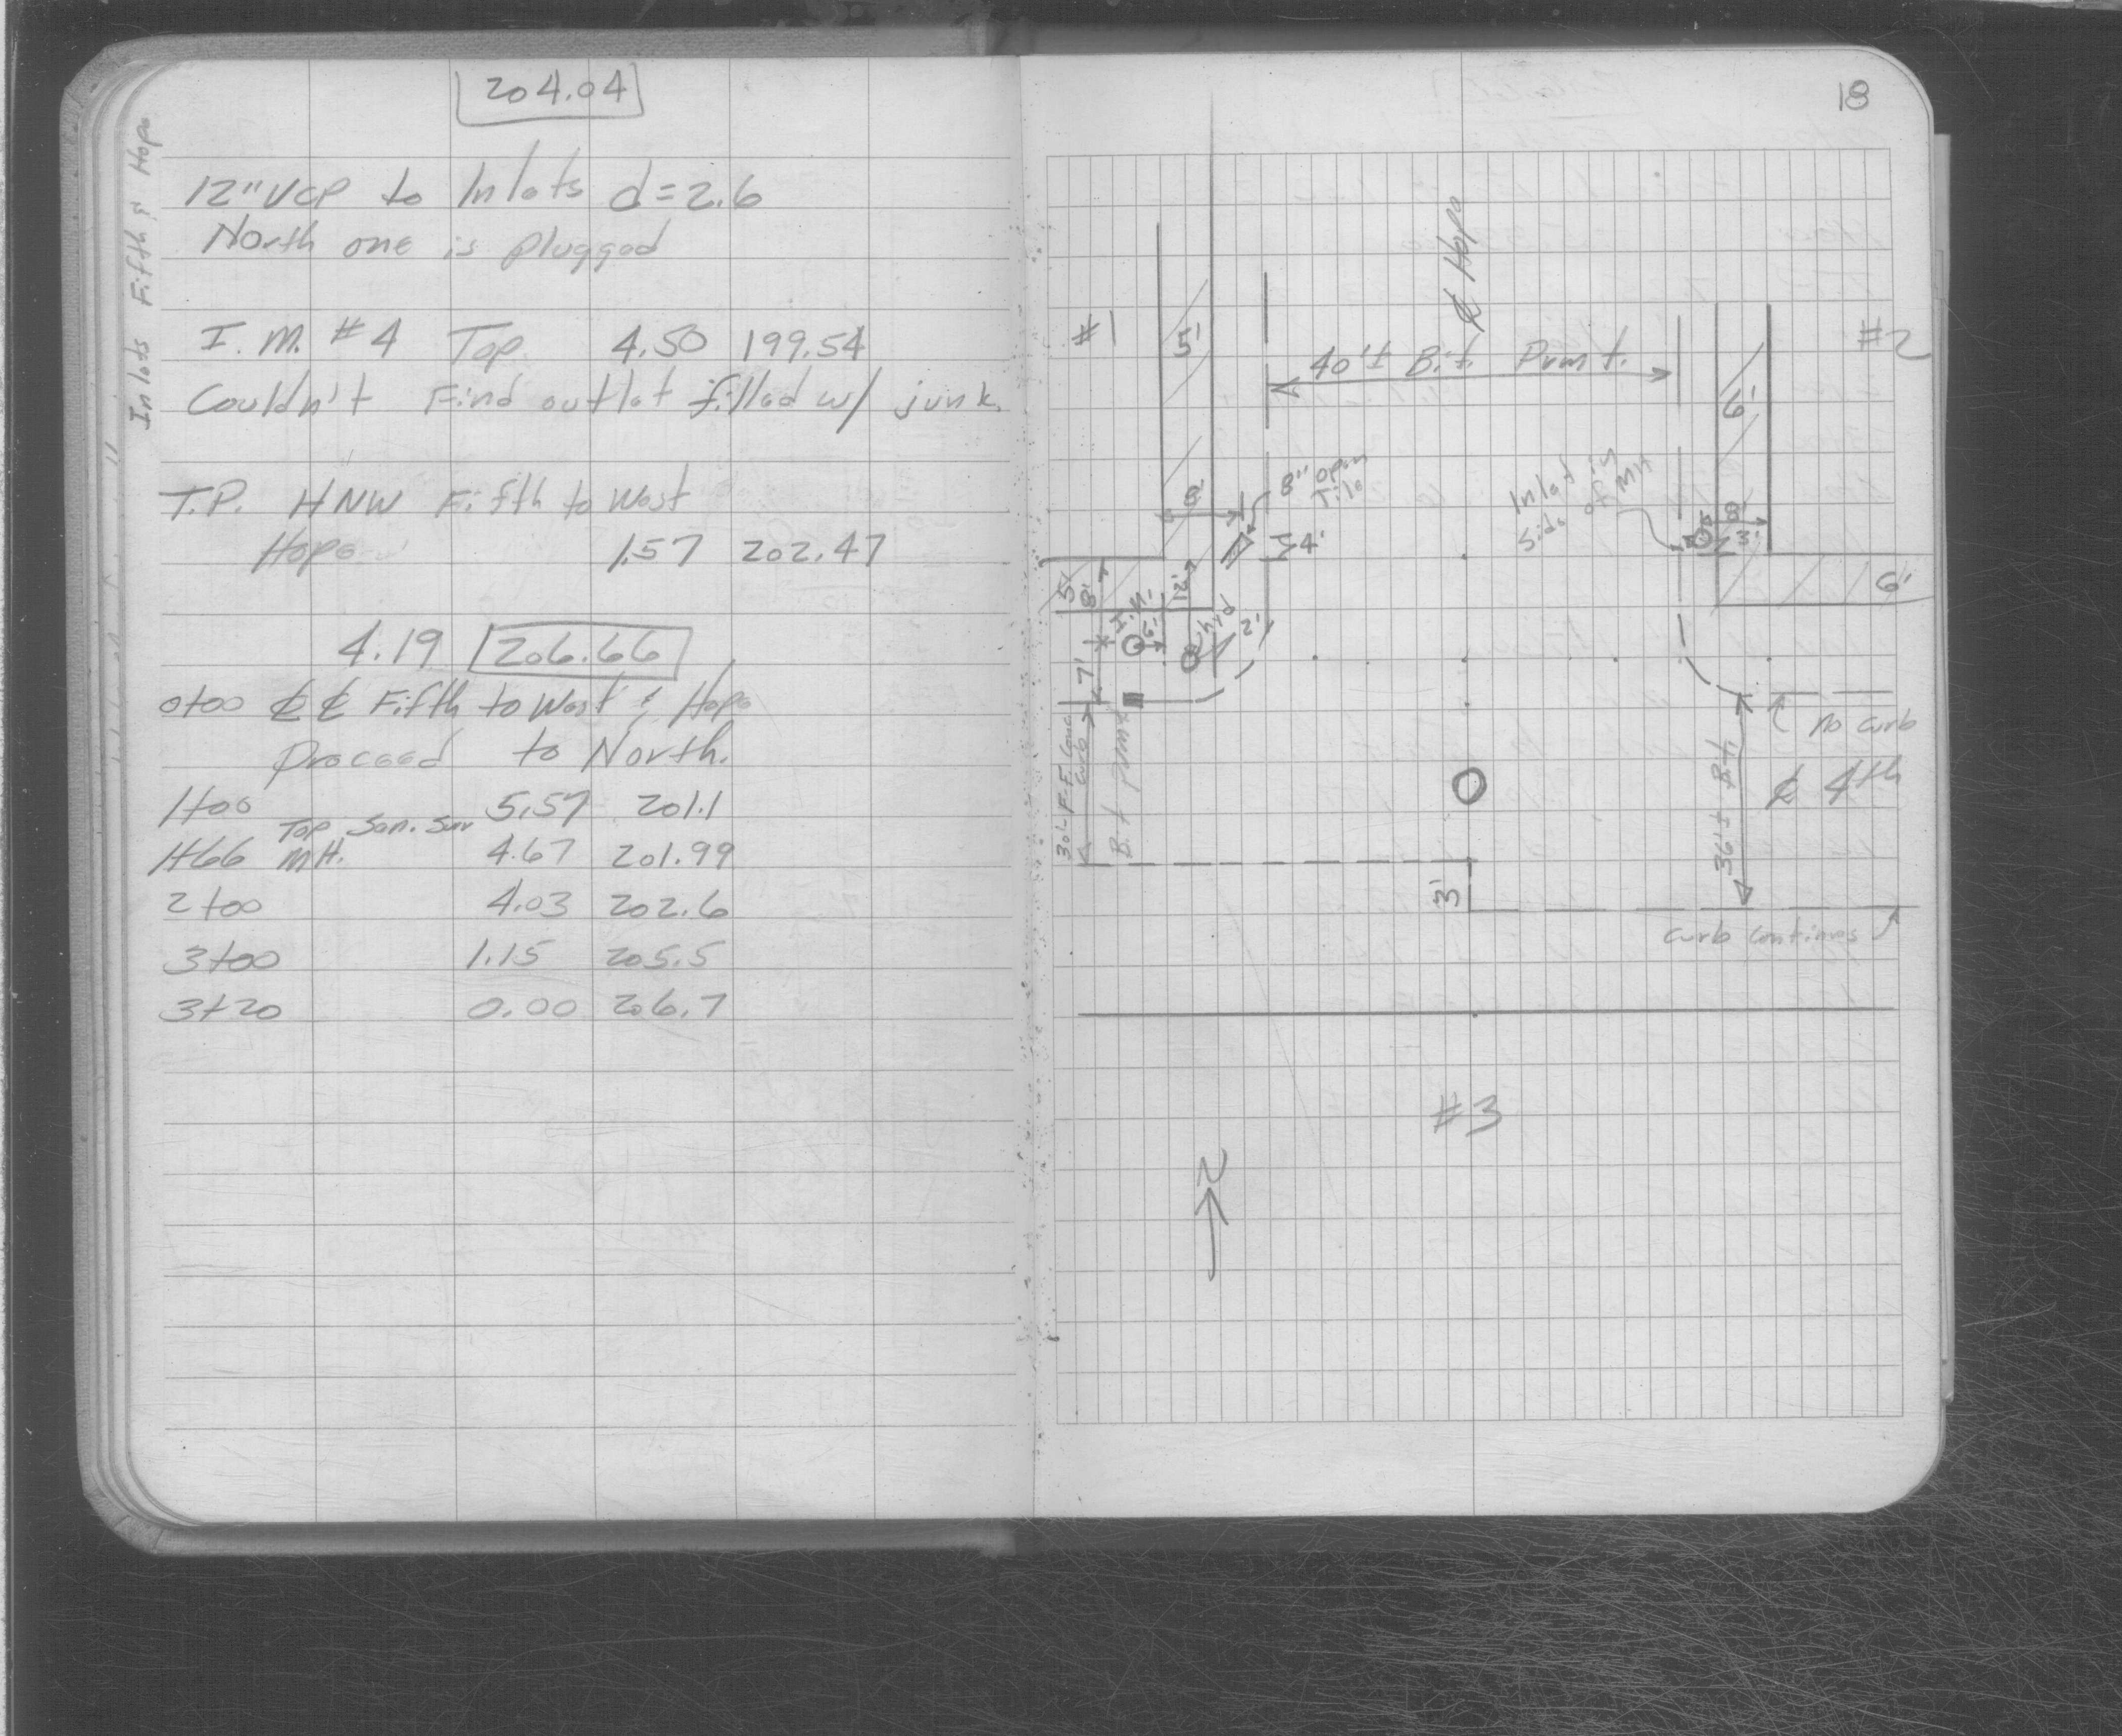 204.04
Inlets Fifth & Hope
12" VCP to Inlets d=2.6
North one is plugged
I.M. #4 Top 4.50 199.54
Couldn't Find outlet filled w/ junk.
T.P. HNW Fifth to West
Hope 1.57 202.47
4.19 206.66
0+00 ℄ ℄ Fifth to West & Hope
Proceed to North.
1+00 5.57 201.1
1+66 Top San. Swr MH. 4.67 201.99
2+00 4.03 202.6
3+00 1.15 205.5
3+20 0.00 206.7
18
℄ Hope
#1
5'
40'± Bit. Pvmt.
6'
#2
8" open Tile
Inlet in side of MH
8'
4'
8'
3'
5'
8'
12'
6'
2'
7'
6'
No curb
℄ 4th
36'± Bit.
Bit Pvmt
3'
curb continues
#3
N